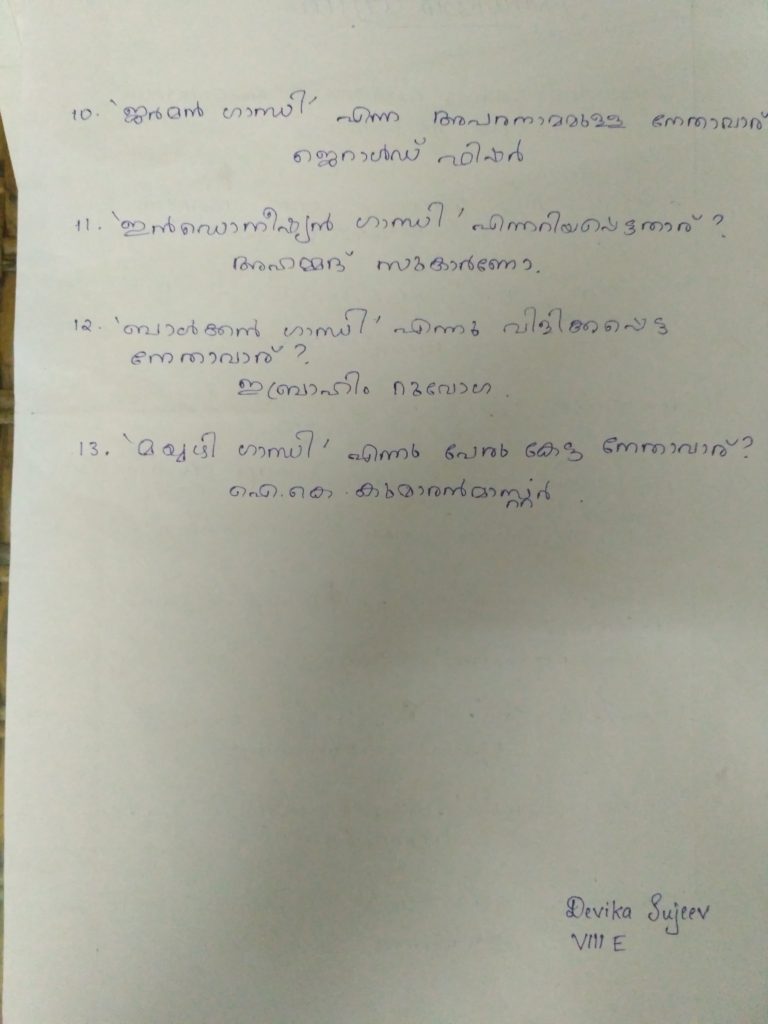 10. 'ജർമൻ ഗാന്ധി' എന്ന അപരനാമമുള്ള നേതാവാര്
ജെറാൾഡ് ഫിഷർ
11. 'ഇൻഡൊനീഷ്യൻ ഗാന്ധി' എന്നറിയപ്പെട്ടതാര്?
അഹമ്മദ് സുകാർണോ.
12. 'ബാൾക്കൻ ഗാന്ധി' എന്നു വിളിക്കപ്പെട്ട
നേതാവാര്?
ഇബ്രാഹിം റുവോഗ.
13. 'മയ്യഴി ഗാന്ധി' എന്നു പേരു കേട്ട നേതാവാര്?
ഐ.കെ.കുമാരൻമാസ്റ്റർ.
Devika Sujeev
VIII E